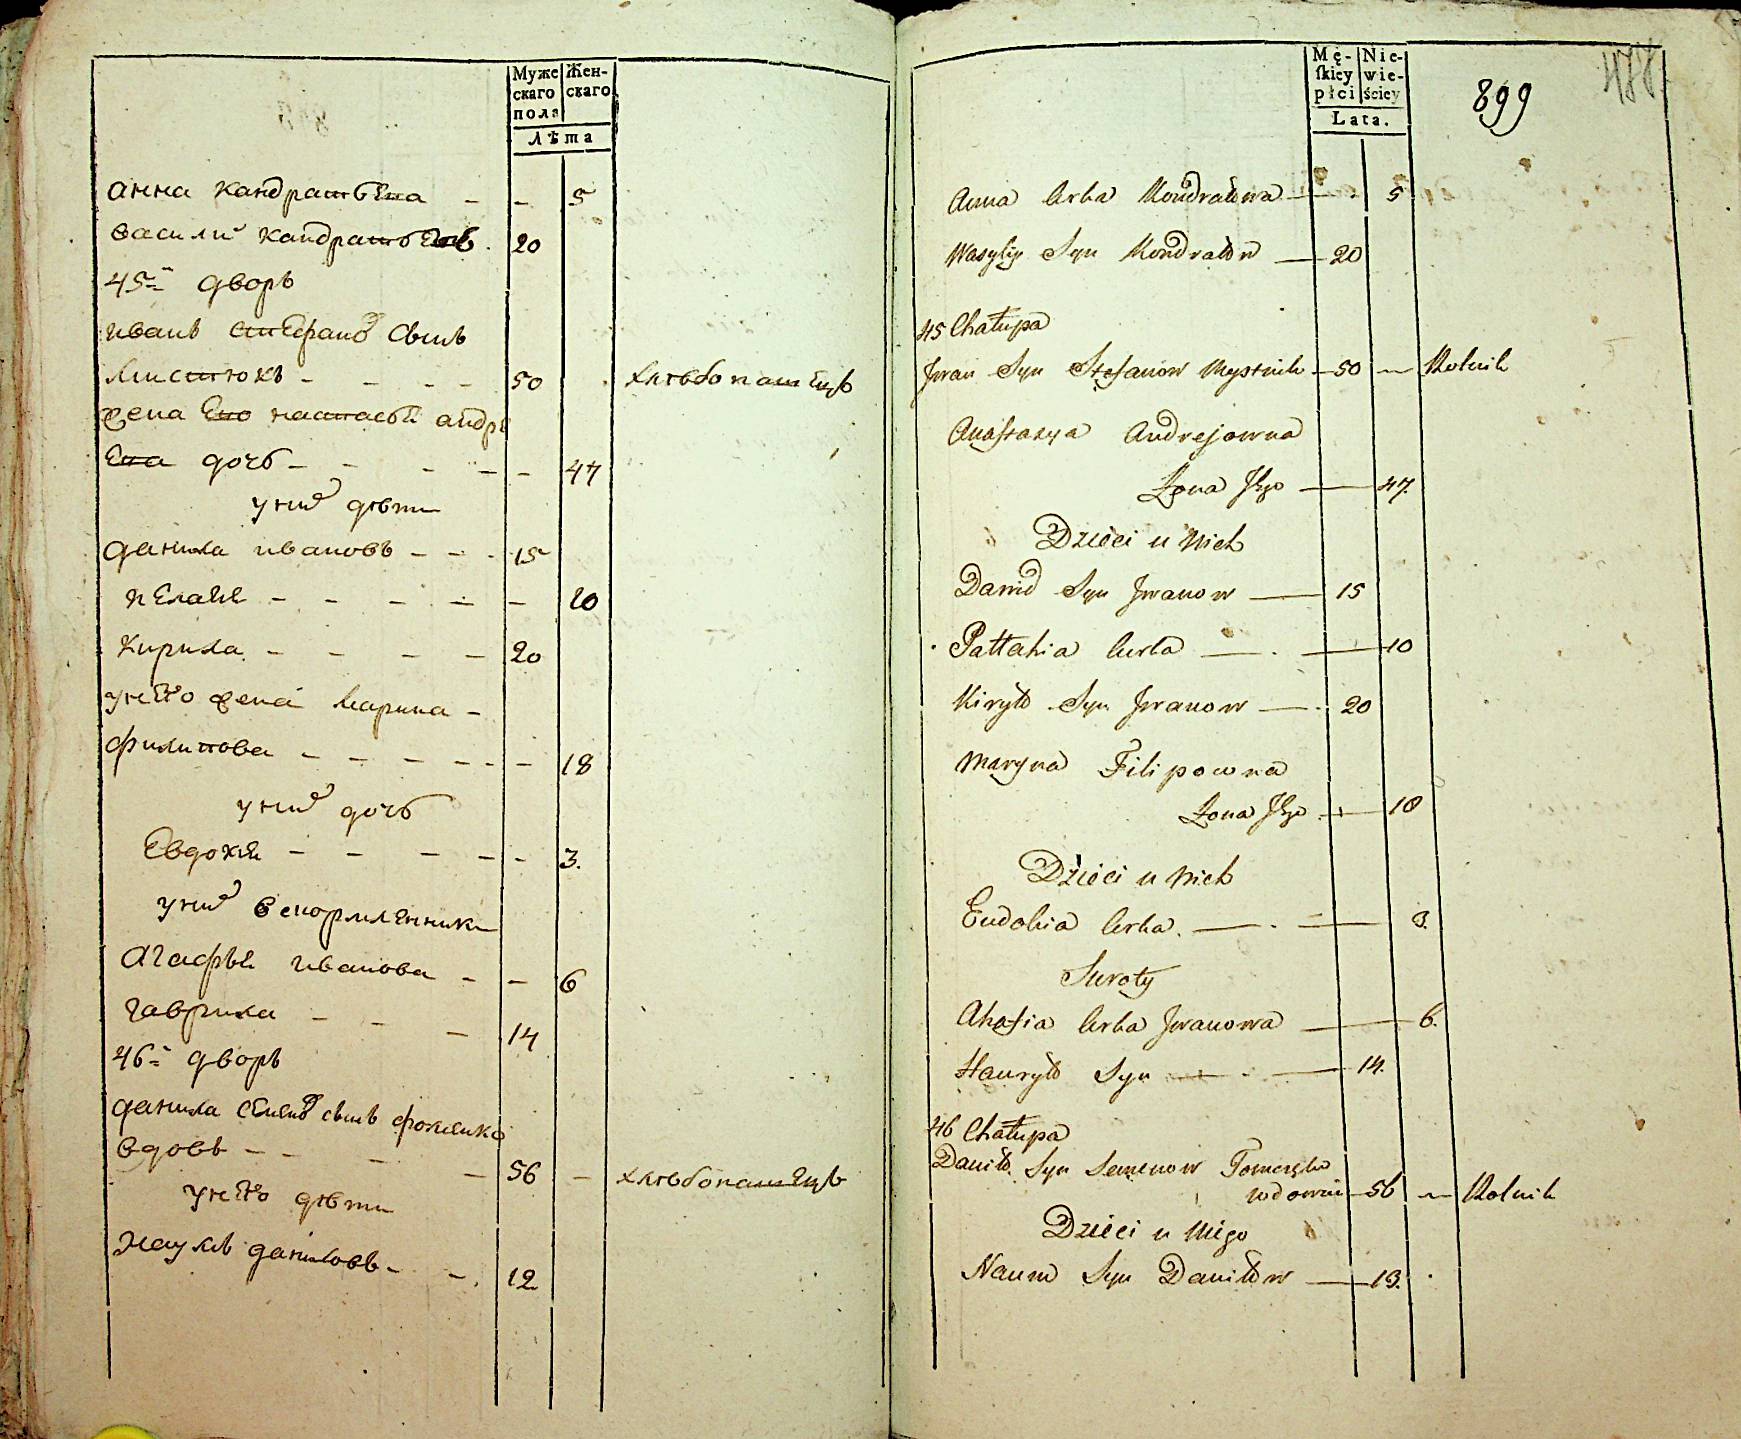 Муже
скаго
пола
Жен-
скаго
Лѣта
анна кандратьева - - 5
василий кандратьевъ . 20
45й дворъ
иванъ стефановъ сынъ
мистюкъ - - - - 50 хлѣбопашецъ
жена его настасья андре
ева дочь - - - - - 47
у них дѣти
данила ивановъ - - - 15
пелагея - - - - - 10
кирила - - - - 20
у него жена марина -
филипова - - - - - - 18
у них дочь
Евдокия - - - - - 3.
у них вскормленники
агафья иванова - - 6
гаврила - - - 14
46й дворъ
данила семеновъ сынъ фоменко
вдовъ - - - - 56 - хлѣбопашецъ
у него дѣти
наумъ даниловъ - - . 12
Mę-
skiey
płci
Nie-
wie-
ściey
Lata.
899
488
Anna Corka Kondratowa 5
Wasyliy Syn Kondratow 20
45 Chałupa
Jwan Syn Stefanow Mystiuk 50 Rolnik
Anastazya Andrejowna
Żona Jego 47.
Dzieci u Nich
Danid Syn Jwanow 15
Pałahia Curka 10
Kiryło Syn Jwanow 20
Maryna Filipowna
Żona Jego 18
Dzieci u Nich
Eudokia Corka. 3.
Siroty
Ahafia Corka Jwanowa 6.
Hauryło Syn 14.
46 Chałupa
Daniło Syn Semenow
wdowiec 56 Rolnik
Dzieci u Niego
Naum Syn Daniłow 13.